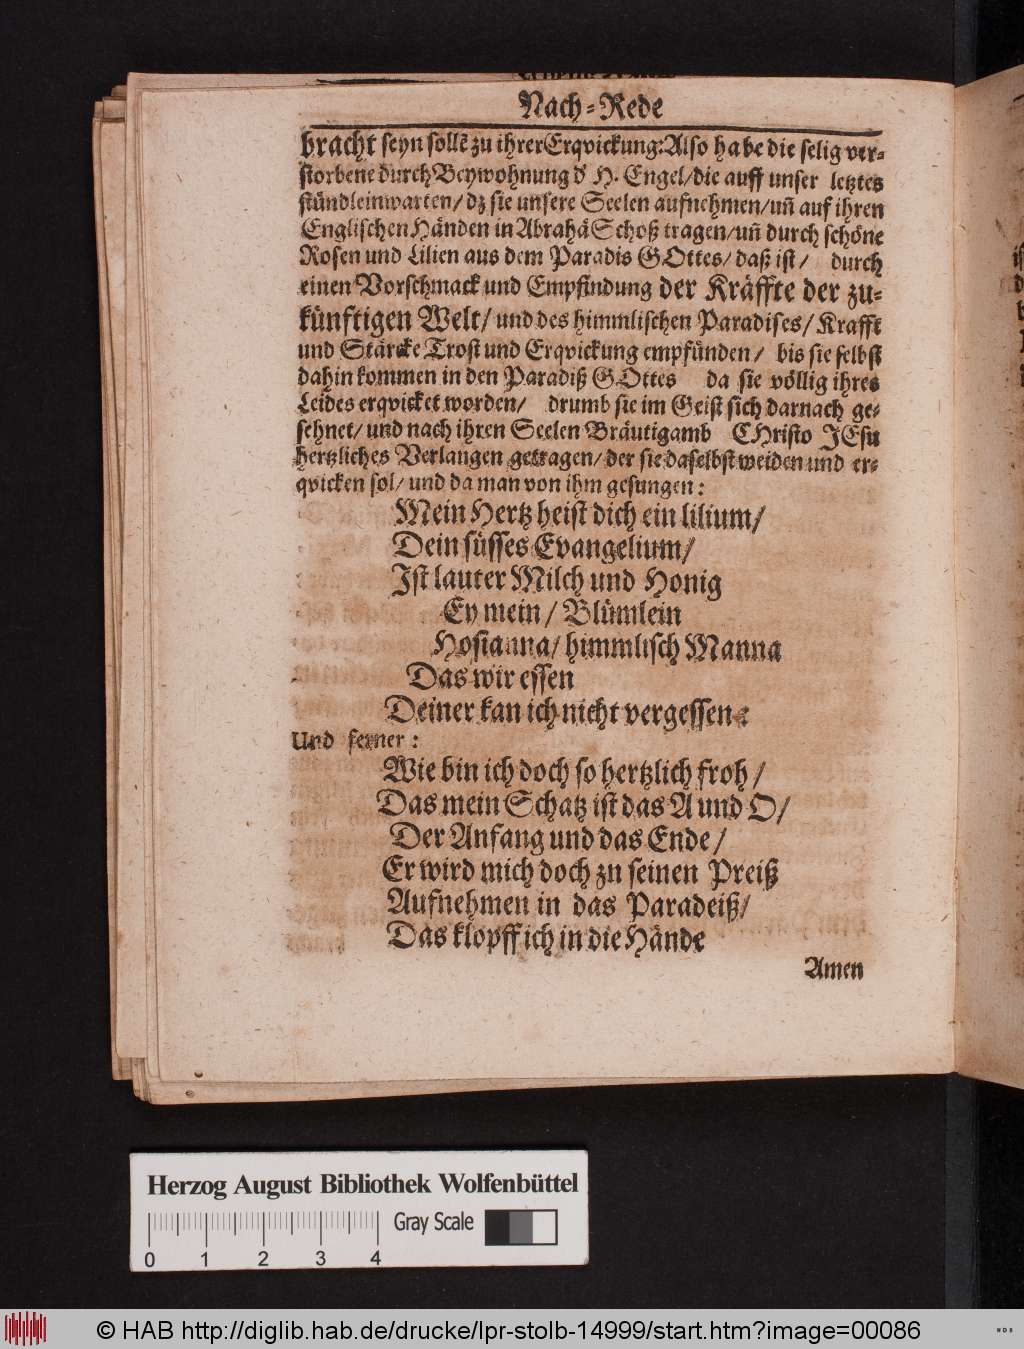 Nach-Rede
bracht seyn sollē zu ihrer Erqvickung: Also habe die selig ver-
storbene durch Beywohnung d' H. Engel/die auff unser letztes
stündlein warten/ dz sie unsere Seelen aufnehmen/un̄ auf ihren
Englischen Händen in Abrahā Schoß tragen/un̄ durch schöne
Rosen und Lilien aus dem Paradis GOttes/ daß ist/ durch
einen Vorschmack und Empfindung der Kräffte der zu-
künftigen Welt/ und des himmlischen Paradises/ Krafft
und Stärcke Trost und Erqvickung empfünden/ bis sie selbst
dahin kommen in den Paradiß GOttes da sie völlig ihres
Leides erqvicket worden/ drumb sie im Geist sich darnach ge-
sehnet/ und nach ihren Seelen Bräutigamb CHristo JEsu
hertzliches Verlangen getragen/ der sie daselbst weiden und er-
qvicken sol/ und da man von ihm gesungen:
Mein Hertz heist dich ein lilium/
Dein süsses Evangelium/
Ist lauter Milch und Honig
Ey mein/ Blümlein
Hosianna/ himmlisch Manna
Das wir essen
Deiner kan ich nicht vergessen:
Und ferner:
Wie bin ich doch so hertzlich froh/
Das mein Schatz ist das A und O/
Der Anfang und das Ende/
Er wird mich doch zu seinen Preiß
Aufnehmen in das Paradeiß/
Das klopff ich in die Hände
Amen
Herzog August Bibliothek Wolfenbüttel
Gray Scale
0 1 2 3 4
© HAB http://diglib.hab.de/drucke/lpr-stolb-14999/start.htm?image=00086